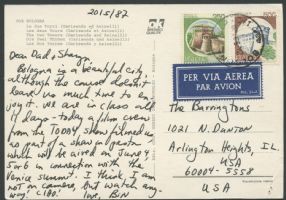 FOR BOLOGNA
Le due Torri (Garisenda ed Asinelli)
Les deux Tours (Garisenda et Asinelli)
The two Towers (Garisenda and Asinelli)
Die zwei Türme (Garisenda und Asinelli)
20/5/87
Dear Dad &
Bologna is a beautiful city,
although the course doesn't
leave too much time to en-
joy it. We are in class all
day - today a film crew
from the TODAY show filmed us
as part of a show in
which will be aired on June 4
5 or 6 in connection with the
Venice summit. I think I am
not on camera, but watch any-
way! CIAO! Love,
PER VIA AEREA
PAR AVION
The Barringtons
1021 N. DANTON
Arlington Heights, IL.
USA
60004-5558
USA